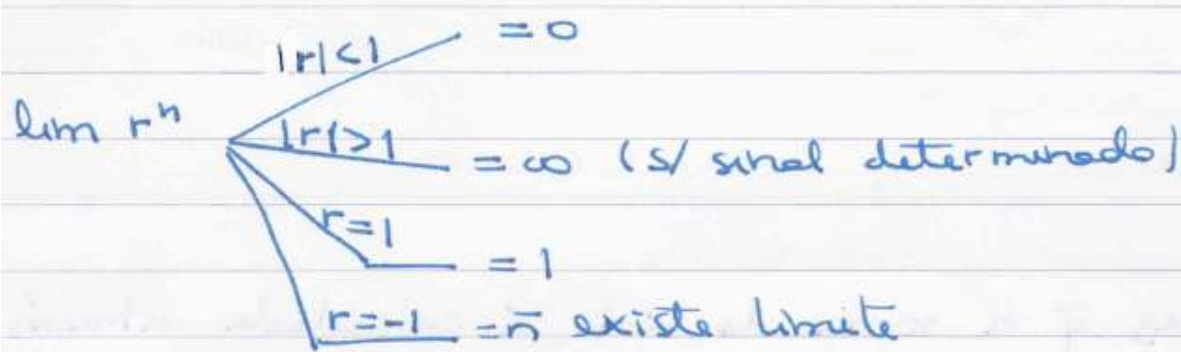 |r|<1 = 0
lim rⁿ
|r|>1 = ∞ (s/ sinal determinado)
r=1 = 1
r=-1 = ñ existe limite